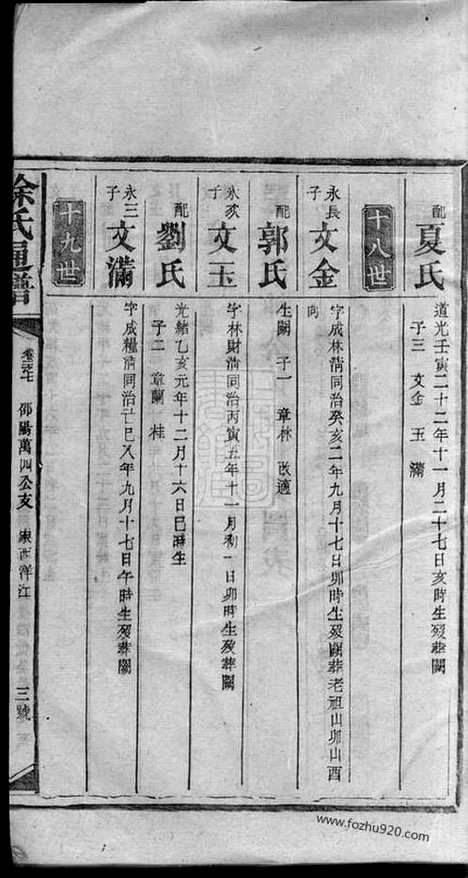 配夏氏
道光壬寅二十二年十一月二十七日亥時生
子三 文金 玉 滿
十八世
永長子 文金
字成林清同治癸亥二年九月十七日卯時生歿闕葬老祖山卯山酉向
配郭氏
生闕 子一 章林 改適
永次子 文玉
字林財清同治丙寅五年十一月初一日卯時生歿葬闕
配劉氏
光緒乙亥元年十二月十六日巳時生
子二 章蘭 桂
永三子 文滿
字成糧清同治己巳八年九月十七日午時生歿葬闕
十九世
徐氏通譜
邵陽萬四公支
東西洋江
三號
www.fozhu920.com